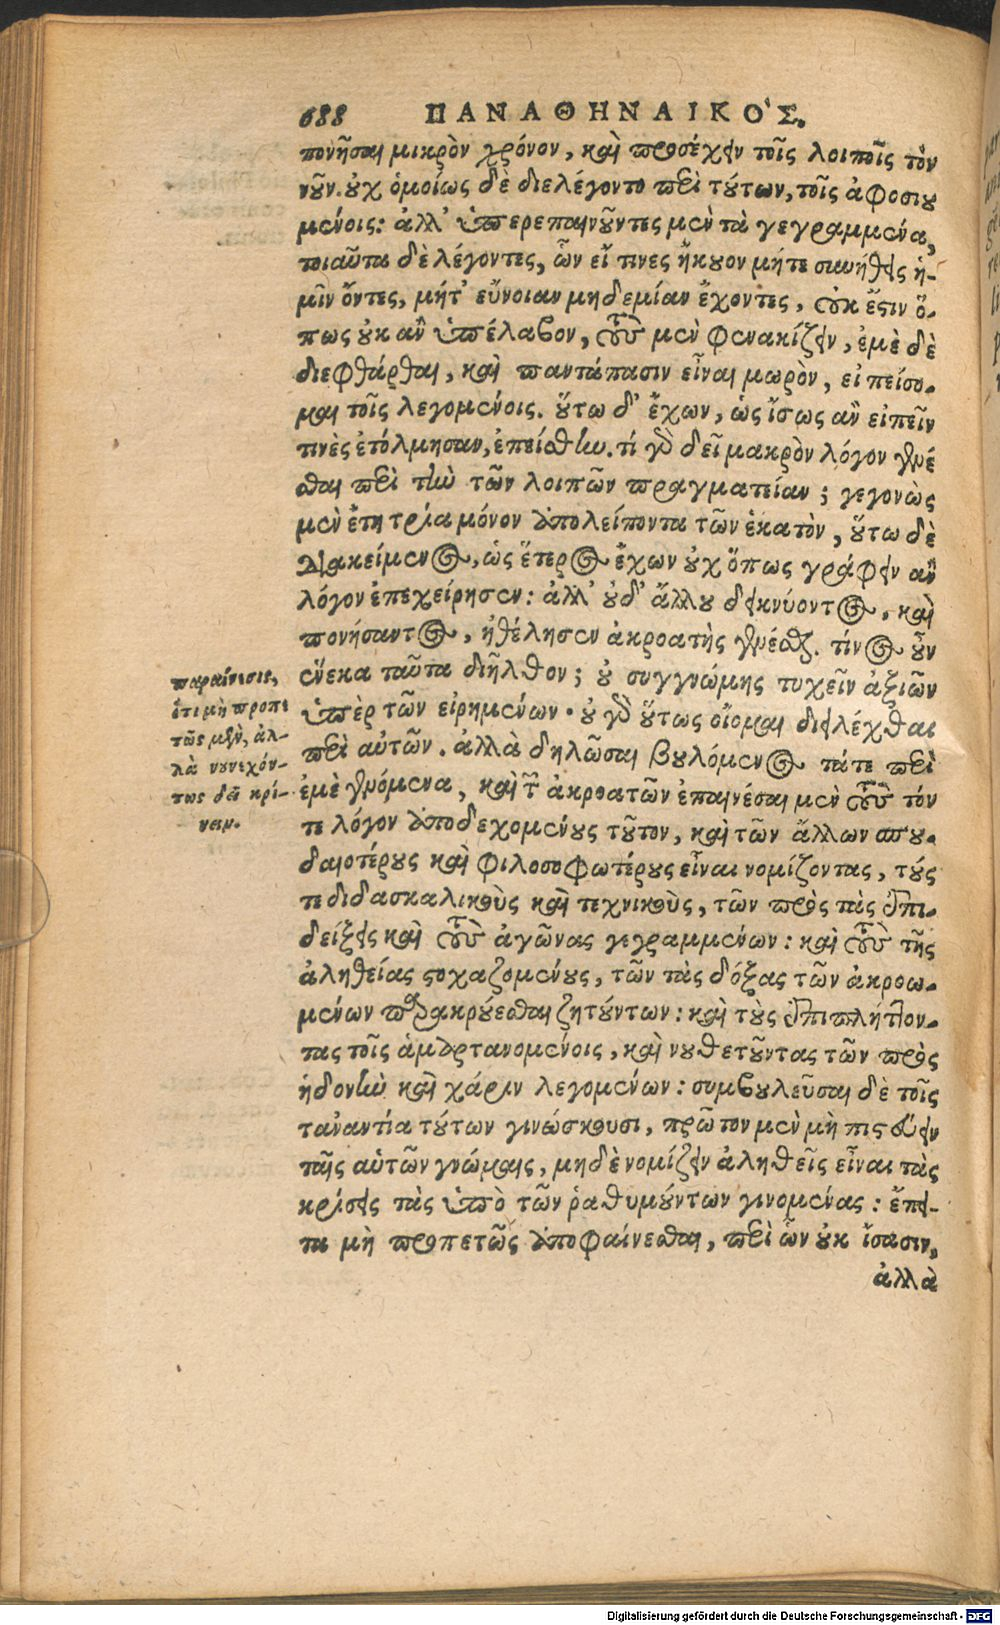 688 ΠΑΝΑΘΗΝΑΙΚΟ'Σ.
πονῆσαι μικρὸν χρόνον, καὶ προσέχειν τοῖς λοιποῖς τὸν
νοῦν. οὐχ ὁμοίως δὲ διελέγοντο περὶ τούτων, τοῖς ἀφοσιου
μένοις: ἀλλ' ὑπερεπαινοῦντες μὲν τὰ γεγραμμένα,
τοιαῦτα δὲ λέγοντες, ὧν εἴ τινες ἤκουον μήτε συνήθεις ἡ-
μῖν ὄντες, μήτ' εὔνοιαν μηδεμίαν ἔχοντες, οὐκ ἔστιν ὅ-
πως οὐκ ἂν ὑπέλαβον, τοὺς μὲν φενακίζειν, ἐμὲ δὲ
διεφθάρθαι, καὶ παντάπασιν εἶναι μωρὸν, εἰ πείσο-
μαι τοῖς λεγομένοις. οὕτω δ' ἔχων, ὡς ἴσως ἂν εἰπεῖν
τινὲς ἐτόλμησαν, ἐπείσθην. τί γὰρ δεῖ μακρὸν λόγον γενέ
σθαι περὶ τὴν τῶν λοιπῶν πραγματείαν; γεγονὼς
μὲν ἔτη τρία μόνον ἀπολείποντα τῶν ἑκατὸν, οὕτω δὲ
διακείμενος, ὡς ἕτερος ἔχων οὐχ ὅπως γράφειν ἂν
λόγον ἐπεχείρησεν: ἀλλ' οὐδ' ἄλλου δεικνύοντος, καὶ
πονήσαντος, ἠθέλησεν ἀκροατὴς γενέσθαι. τίνος οὖν
ἕνεκα ταῦτα διῆλθον; οὐ συγγνώμης τυχεῖν ἀξιῶν
ὑπὲρ τῶν εἰρημένων· οὐ γὰρ οὕτως οἴομαι διειλέχθαι
περὶ αὐτῶν. ἀλλὰ δηλῶσαι βουλόμενος τάτε περὶ
ἐμὲ γενόμενα, καὶ τῶν ἀκροατῶν ἐπαινέσαι μὲν τοὺς τόν
τε λόγον ἀποδεχομένους τοῦτον, καὶ τῶν ἄλλων σπου-
δαιοτέρους καὶ φιλοσοφωτέρους εἶναι νομίζοντας, τούς
τε διδασκαλικοὺς καὶ τεχνικοὺς, τῶν πρὸς τὰς ἐπι-
δείξεις καὶ τοὺς ἀγῶνας γεγραμμένων: καὶ τοὺς τῆς
ἀληθείας στοχαζομένους, τῶν τὰς δόξας τῶν ἀκροω-
μένων παρακρούεσθαι ζητούντων: καὶ τοὺς ἐπιπλήττον-
τας τοῖς ἁμαρτανομένοις, καὶ νουθετοῦντας τῶν πρὸς
ἡδονὴν καὶ χάριν λεγομένων: συμβουλεῦσαι δὲ τοῖς
τἀναντία τούτων γινώσκουσι, πρῶτον μὲν μὴ πιστεύειν
ταῖς αὑτῶν γνώμαις, μηδὲ νομίζειν ἀληθεῖς εἶναι τὰς
κρίσεις τὰς ὑπὸ τῶν ῥαθυμούντων γινομένας: ἔπει-
τα μὴ προπετῶς ἀποφαίνεσθαι, περὶ ὧν οὐκ ἴσασιν,
ἀλλὰ
παραίνεσις,
ὅτι μὴ προπε
τῶς μὲν, ἀλ-
λὰ νουνεχόν-
τως δεῖ κρί-
νειν.
Digitalisierung gefördert durch die Deutsche Forschungsgemeinschaft - DFG